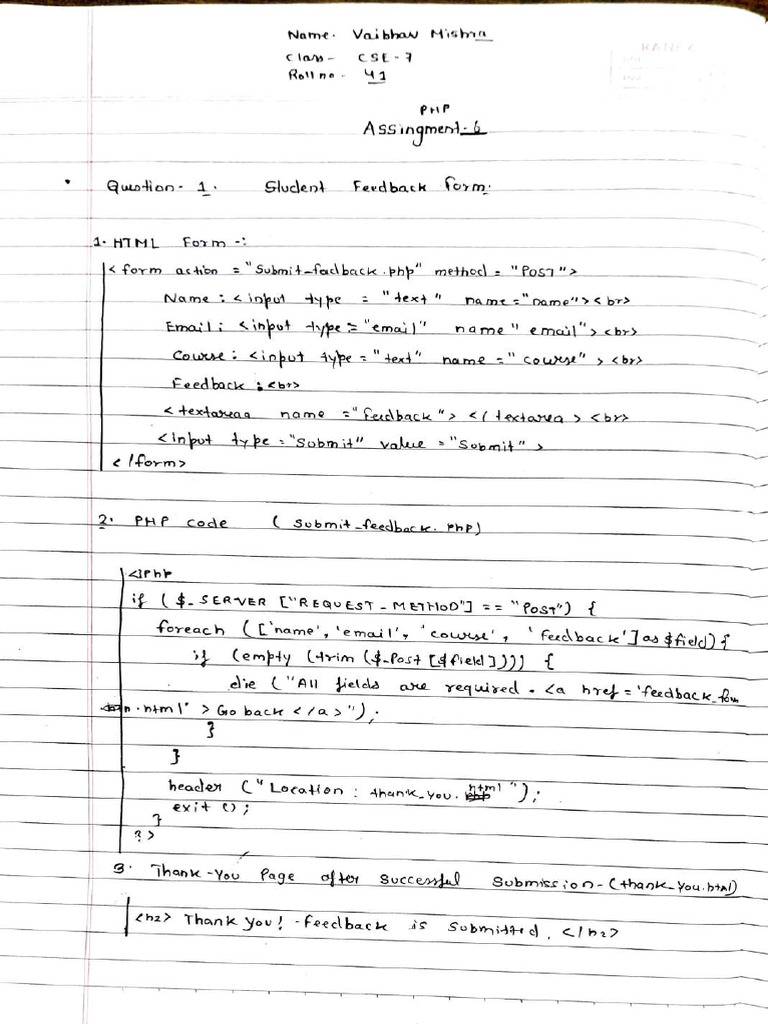 Name. Vaibhav Mishra
Class- CSE-7
Roll no- 41
PHP
Assingment-6
• Question-1. Student Feedback form.
1. HTML Form -:
<form action = "Submit-feedback.php" method = "POST">
Name : <input type = "text" name="name"><br>
Email : <input type = "email" name" email"> <br>
Course : <input type = "text" name = "course" > <br>
Feedback : <br>
<textareaa name = "feedback"> </textarea > <br>
<input type = "Submit" value = "Submit" >
</form>
2. PHP code ( submit_feedback. php)
<?php
if ($_SERVER ["REQUEST_METHOD"] == "POST") {
foreach (['name', 'email', 'course', 'feedback'] as $field) {
if (empty (trim ($_Post [$field]))) {
die ("All fields are required. <a href = 'feedback_for
m.html' > Go back </a>");
}
}
header ("Location : thank_you. html ");
exit ();
}
?>
3. Thank-You Page after successful submission-(thank_you.html)
<h2> Thank you! -feedback is submitted. </h2>